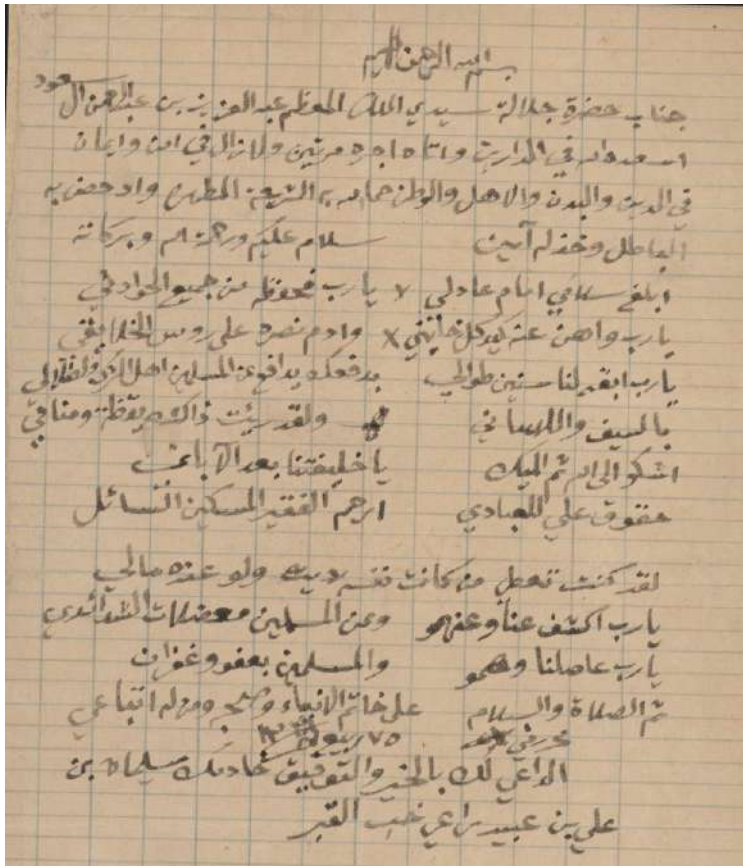 بسم الله الرحمن الرحيم
جناب حضرة جلالة سيدي الملك المعظم عبد العزيز بن عبد الرحمن آل سعود
اسعده الله في الدارين واتاه اجره مرتين ولازال في امن وايمان
في الدين والبدن والاهل والوطن حما الله به الشريعة المطهره وادحض به
الباطل وخذله آمين سلام عليكم ورحمة الله وبركاته
ابلغ سلامي امام عادلي يارب تحفظه من جميع الحوادثي
يارب واهن عنه كيد كل خاينني وادم نصره على روس الخلايقي
يارب ابقيه لنا سنين طوالي بدفعك يدافع عن المسلمين اهل
بالسيف واللساني ولقد رئت ذالك يقظة ومنافي
اشكو الى الله ثم اليك يا خليفتنا بعد الآبائي
حقوق علي للعبادي ارحم الفقير المسكين السائل
لقد كنت تعطي من كانت نفسه ولو عنده مالي
يارب اكشف عنا وعنهمو وعن المسلمين معضلات الشدائدي
يارب عاملنا وهمو والمسلمين بعفو وغفران
ثم الصلاة والسلام على خاتم الانبياء وصحبه ومن له اتباعي
حرر في
الداعي لك بالخير والتوفيق خادمك سليمان بن
علي بن عبيد راعي خب القبر